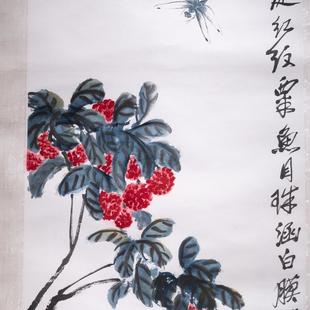 红纹粟鱼目珠涵白膜